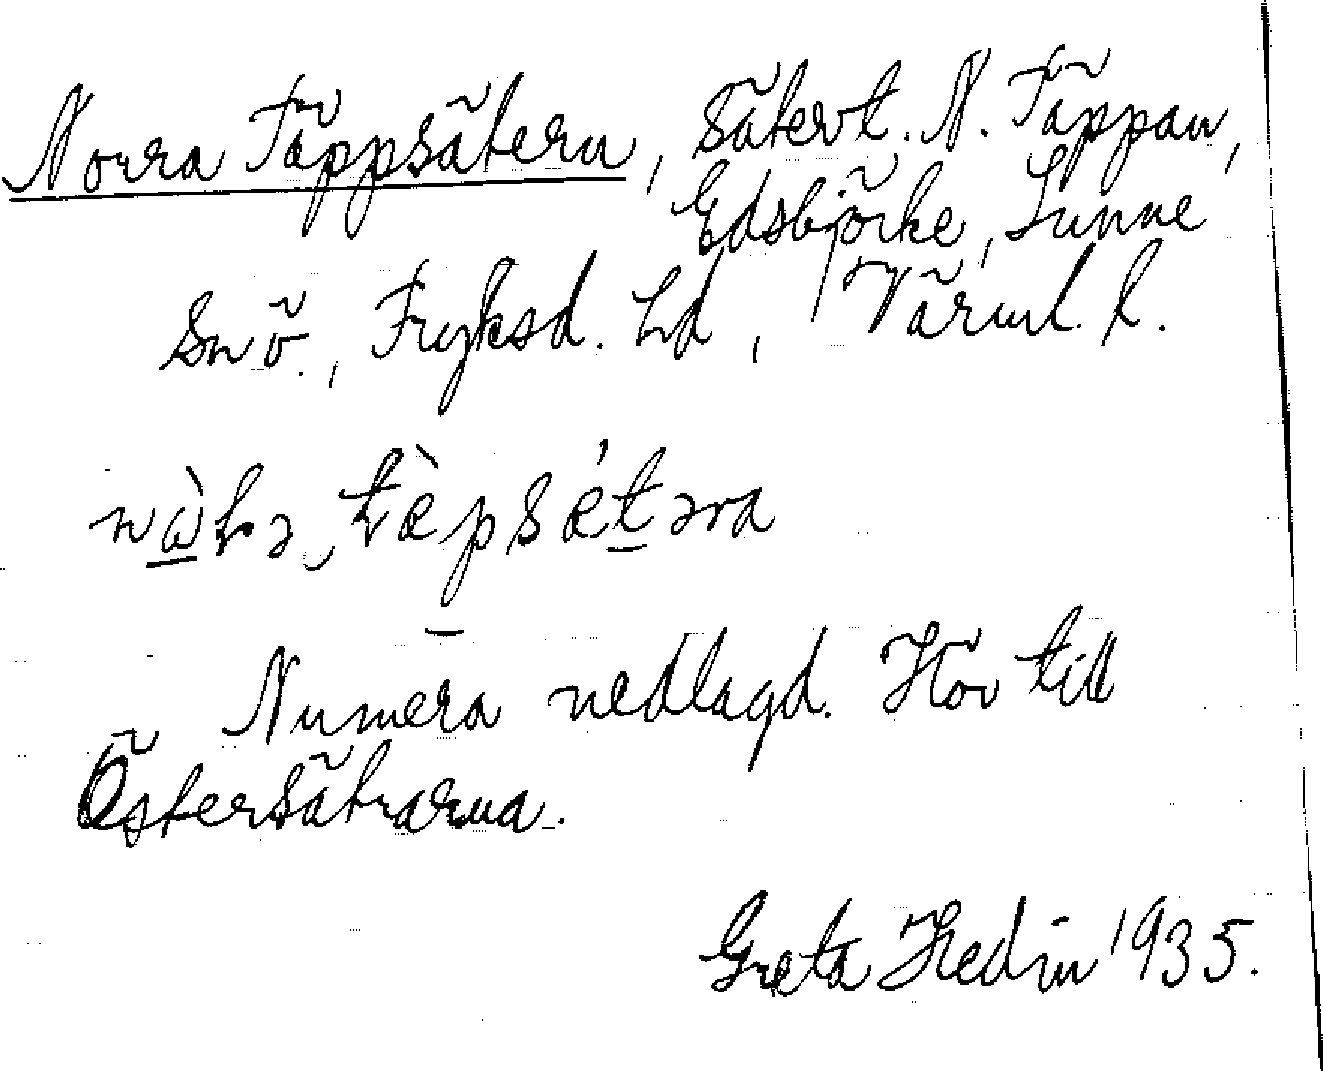 Norra Täppsätern, Sätert. N. Täppan,
Edsbjörke, Sunne
Sn ö., Fryksd. hd, Värml. l.
Numera nedlagd. Hör till
Östersätrarna.
Greta Hedin 1935.